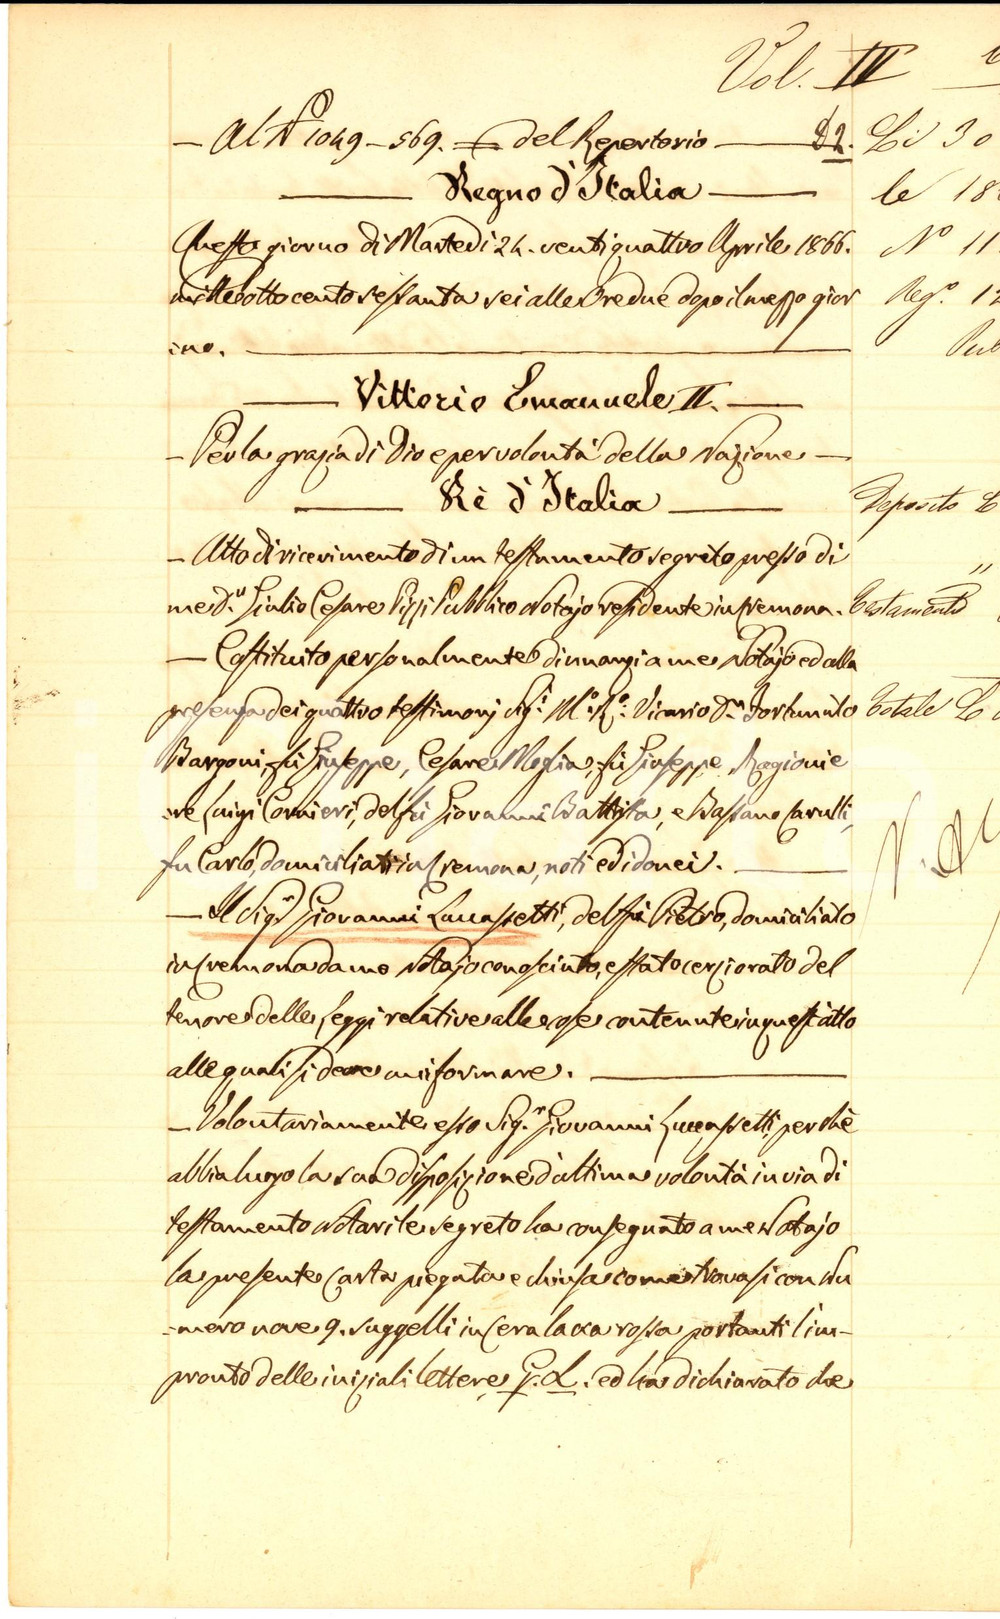 Vol. IV
— Al N.º 1049 – 569. del Repertorio — 82.
Regno d'Italia
Questo giorno di Martedi 24. ventiquattro Aprile 1866.
mille ottocento sessanta sei alle Ore due dopo il mezzo gior
:no.
Vittorio Emanuele II.
— Per la grazia di Dio e per volontà della Nazione —
Rè d'Italia
— Atto di ricevimento di un testamento segreto presso di
me D.r Giulio Cesare Pizzi Pubblico Notajo residente in Cremona.
— Costituito personalmente dinnanzi a me Notajo ed alla
presenza dei quattro testimonj Sig.i M.o R.o Vicario D.n Fortunato
Bargoni, fù Giuseppe, Cesare Meglia, fù Giuseppe Ragionie
:re Luigi Cornieri, del fù Giovanni Battista, e Bassano Carulli,
fu Carlo, domiciliati in Cremona, noti ed idonei.
— Il Sig.r Giovanni Luccassetti, del fù Pietro, domiciliato
in Cremona da me Notajo conosciuto, e stato cerziorato del
tenore delle Leggi relative alle cose contenute in quest'atto
alle quali si deve uniformare.
— Volontariamente esso Sig.r Giovanni Luccassetti, perchè
abbia luogo la sua disposizione d'ultima volontà in via di
testamento Notarile segreto ha consegnato a me Notajo
la presente Carta piegata e chiusa come trovasi con Nu
:mero nove 9. suggelli in Cera lacca rossa portanti l'im-
pronto delle iniziali lettere G. L. ed ha dichiarato che
Li 30
le 18
N.º 11
Reg.º 12
Deposito L
"
Testamento
Totale L